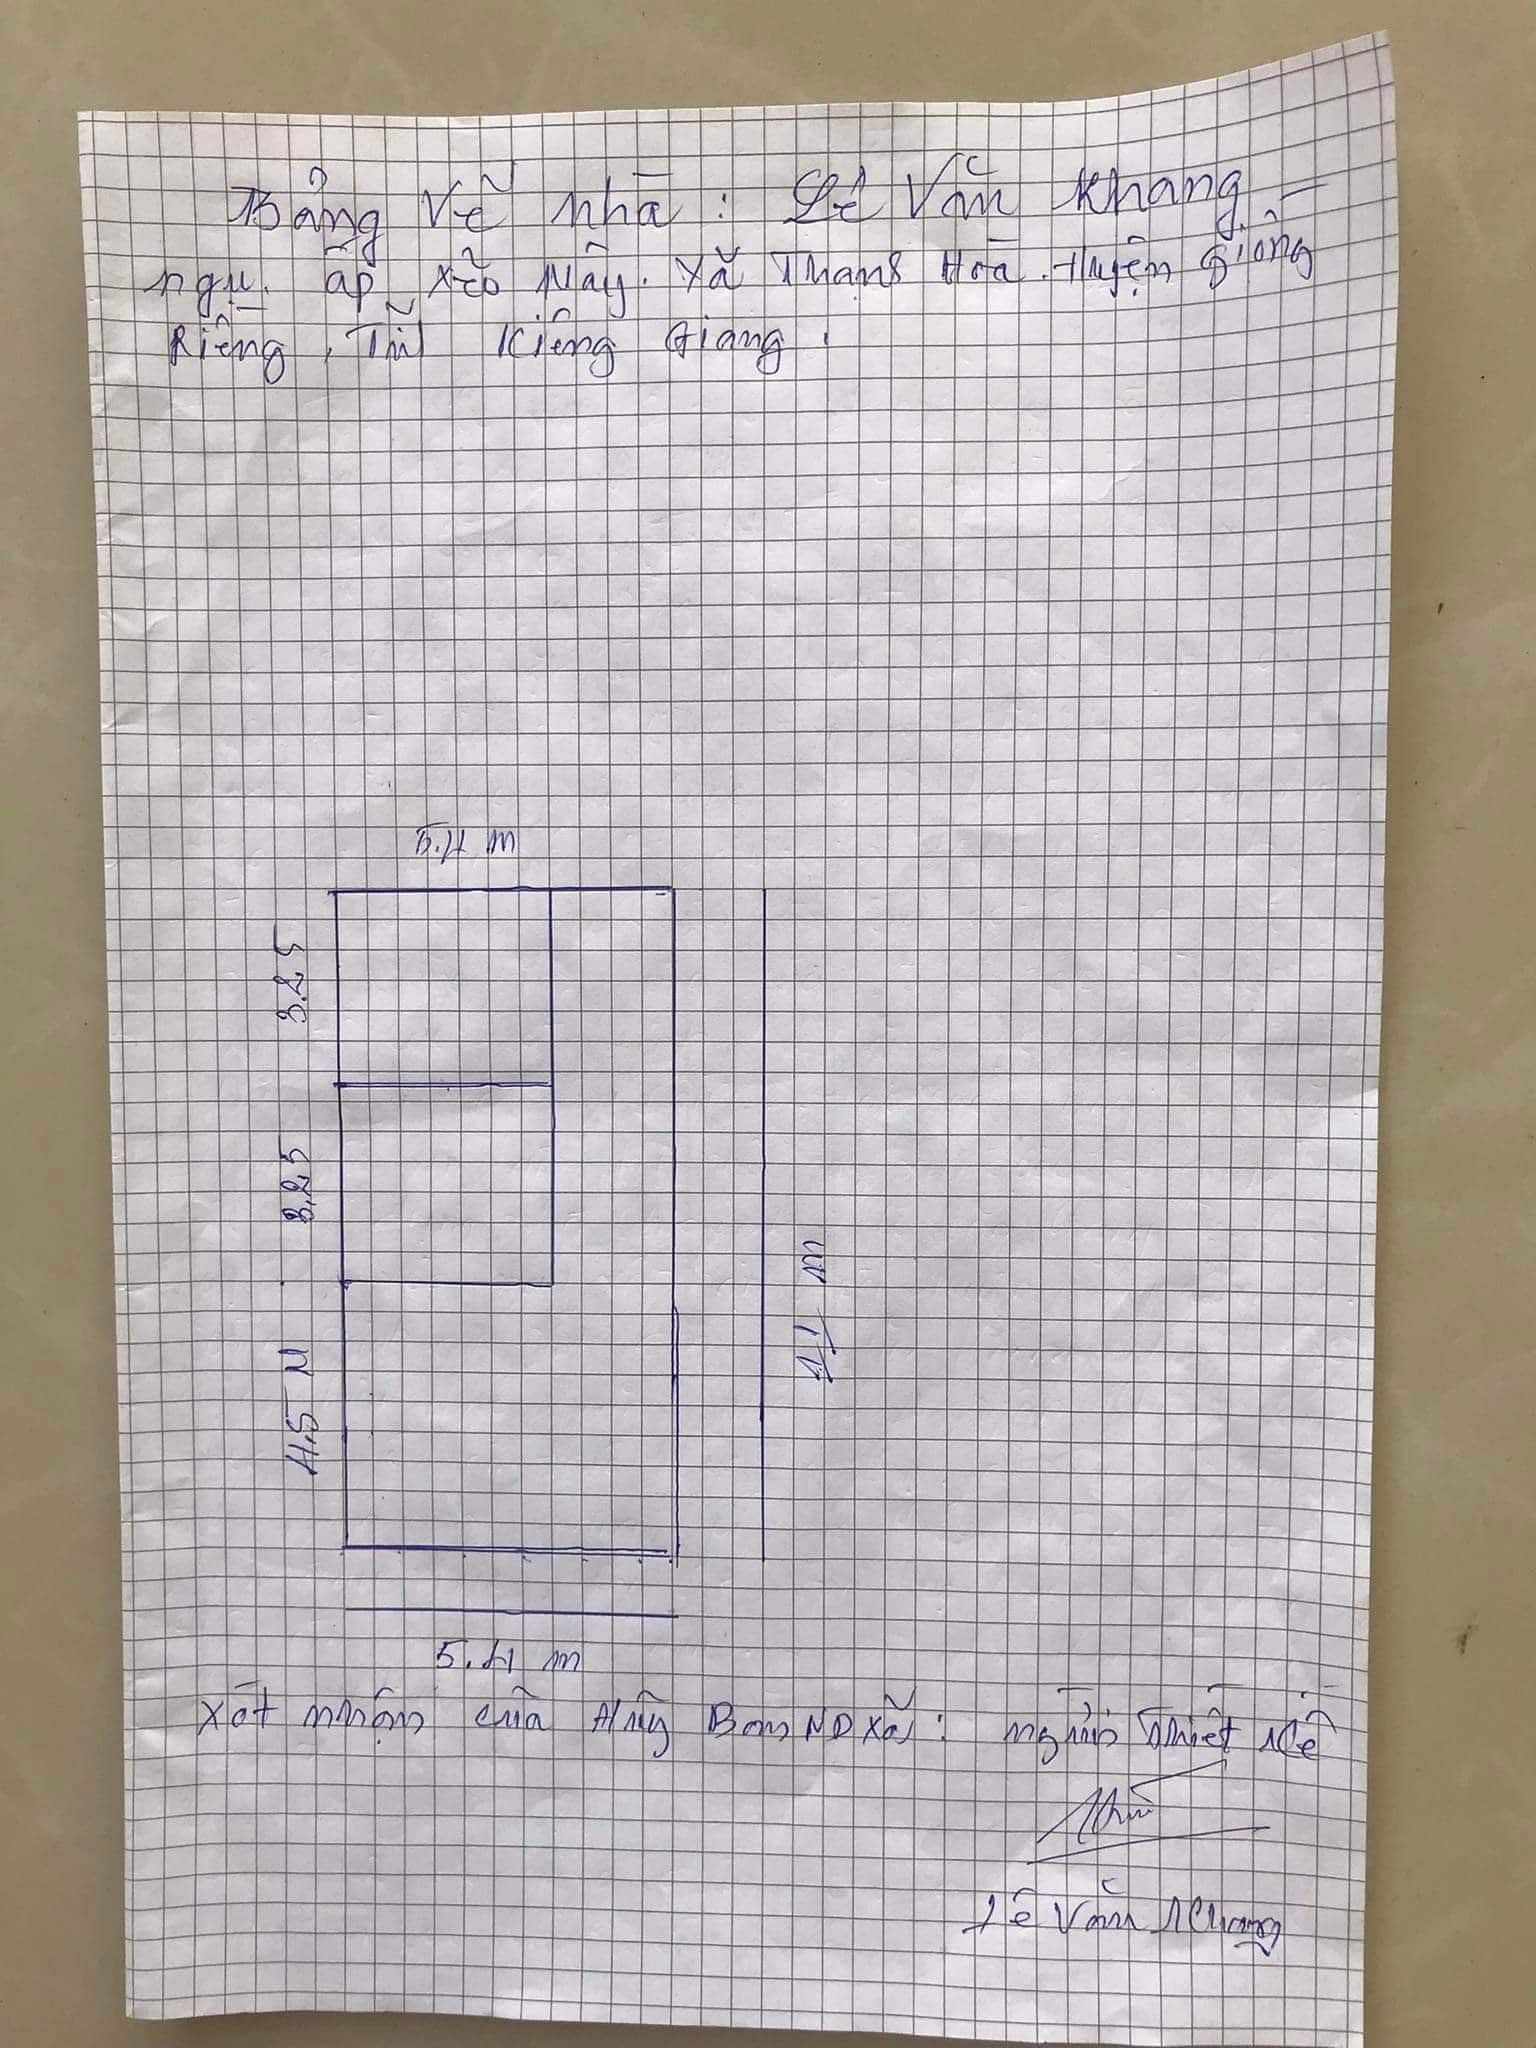 Bảng vẽ nhà: Lê Văn Khang
ngụ. ấp xẻo Mây. xã Thạnh Hoà. Huyện Giồng
Riềng, Tỉnh Kiêng Giang.
5.4 m
3.25
3,25
4,5 M
11 m
5.4 m
xát nhận của Ủy Ban ND xã: người Thiết kế
Lê Văn Khang